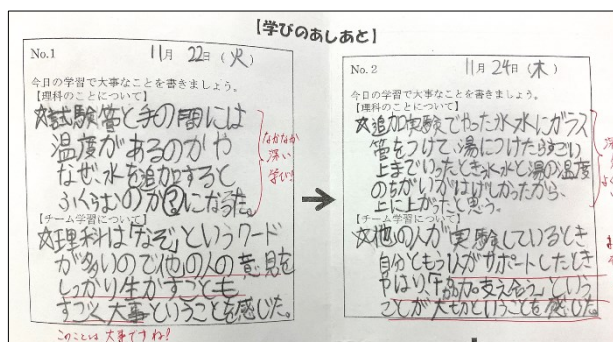 【学びのあしあと】
No.1 11月 22日(火)
今日の学習で大事なことを書きましょう。
【理科のことについて】
☆試験管と手の間には
温度があるのかや
なぜ、水を追加すると
ふくらむのが?になった。
なかなか
深い
学び!
【チーム学習について】
☆理科は「なぞ」というワード
が多いので他の人の意見を
しっかり生かすことも
すごく大事ということを感じた。
このことは大事ですね!
No.2 11月24日(木)
今日の学習で大事なことを書きましょう。
【理科のことについて】
☆追加実験でやった氷水にガラス
管をつけて、湯につけたらすごい
上までいったとき氷水と湯の温度
のちがいがはげしかったから、
上に上がったと思う。
【チーム学習について】
☆他の人が実験しているとき
自分ともう1人がサポートしたとき
やはり「協力」「支え合う」という
ことが大切ということを感じた。